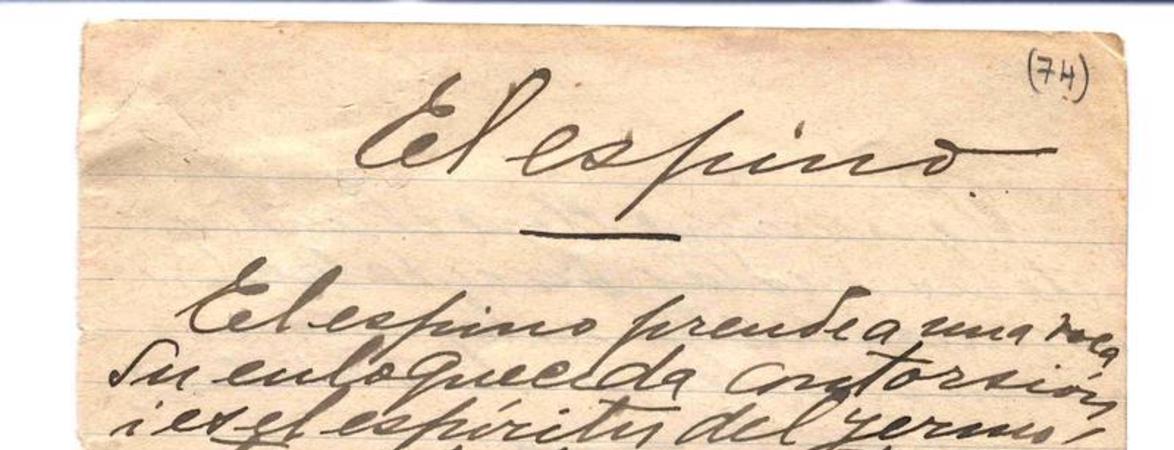 (74)
El espino.
El espino prende a una roca
Su enloquecida contorsión
i es el espíritu del yermo,